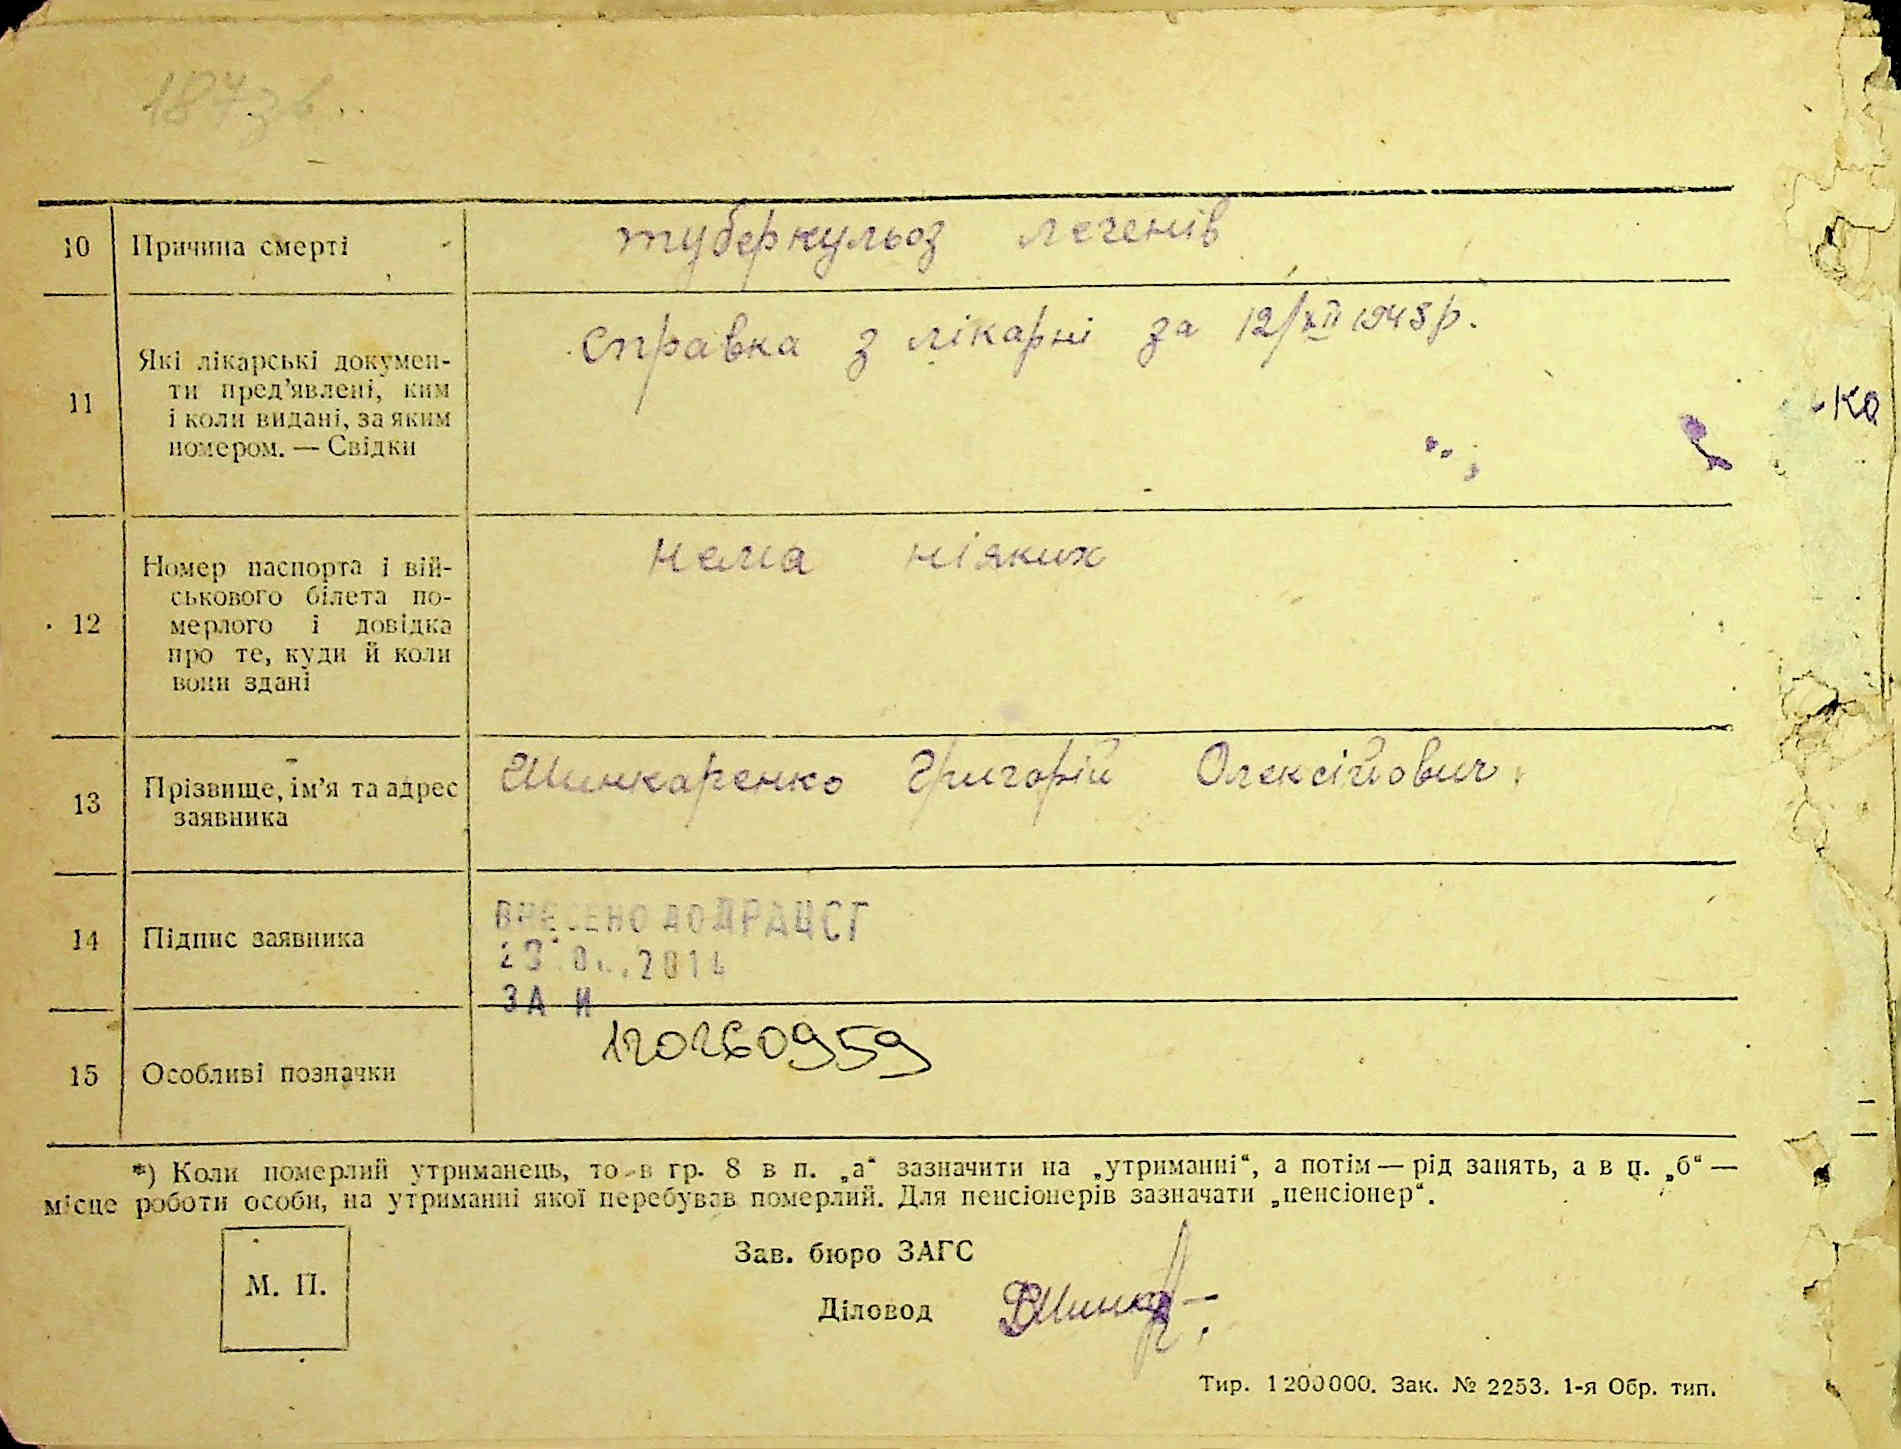 187 зв.
10 Причина смерті туберкульоз легенів
11 Які лікарські докумен-
ти пред'явлені, ким
і коли видані, за яким
номером. — Свідки
справка з лікарні за 12/XII 1948 р.
12 Номер паспорта і вій-
ськового білета по-
мерлого і довідка
про те, куди й коли
вони здані
нема ніяких
13 Прізвище, ім'я та адрес
заявника
Шинкаренко Григорій Олексійович
14 Підпис заявника
ВНЕСЕНО ДО ДРАЦСГ
ЗА И
15 Особливі позначки
120260959
ка
*) Коли померлий утриманець, то в гр. 8 в п. „а“ зазначити на „утриманні“, а потім — рід занять, а в п. „б“ —
місце роботи особи, на утриманні якої перебував померлий. Для пенсіонерів зазначати „пенсіонер“.
М. П.
Зав. бюро ЗАГС
Діловод
Тир. 1200000. Зак. № 2253. 1-я Обр. тип.